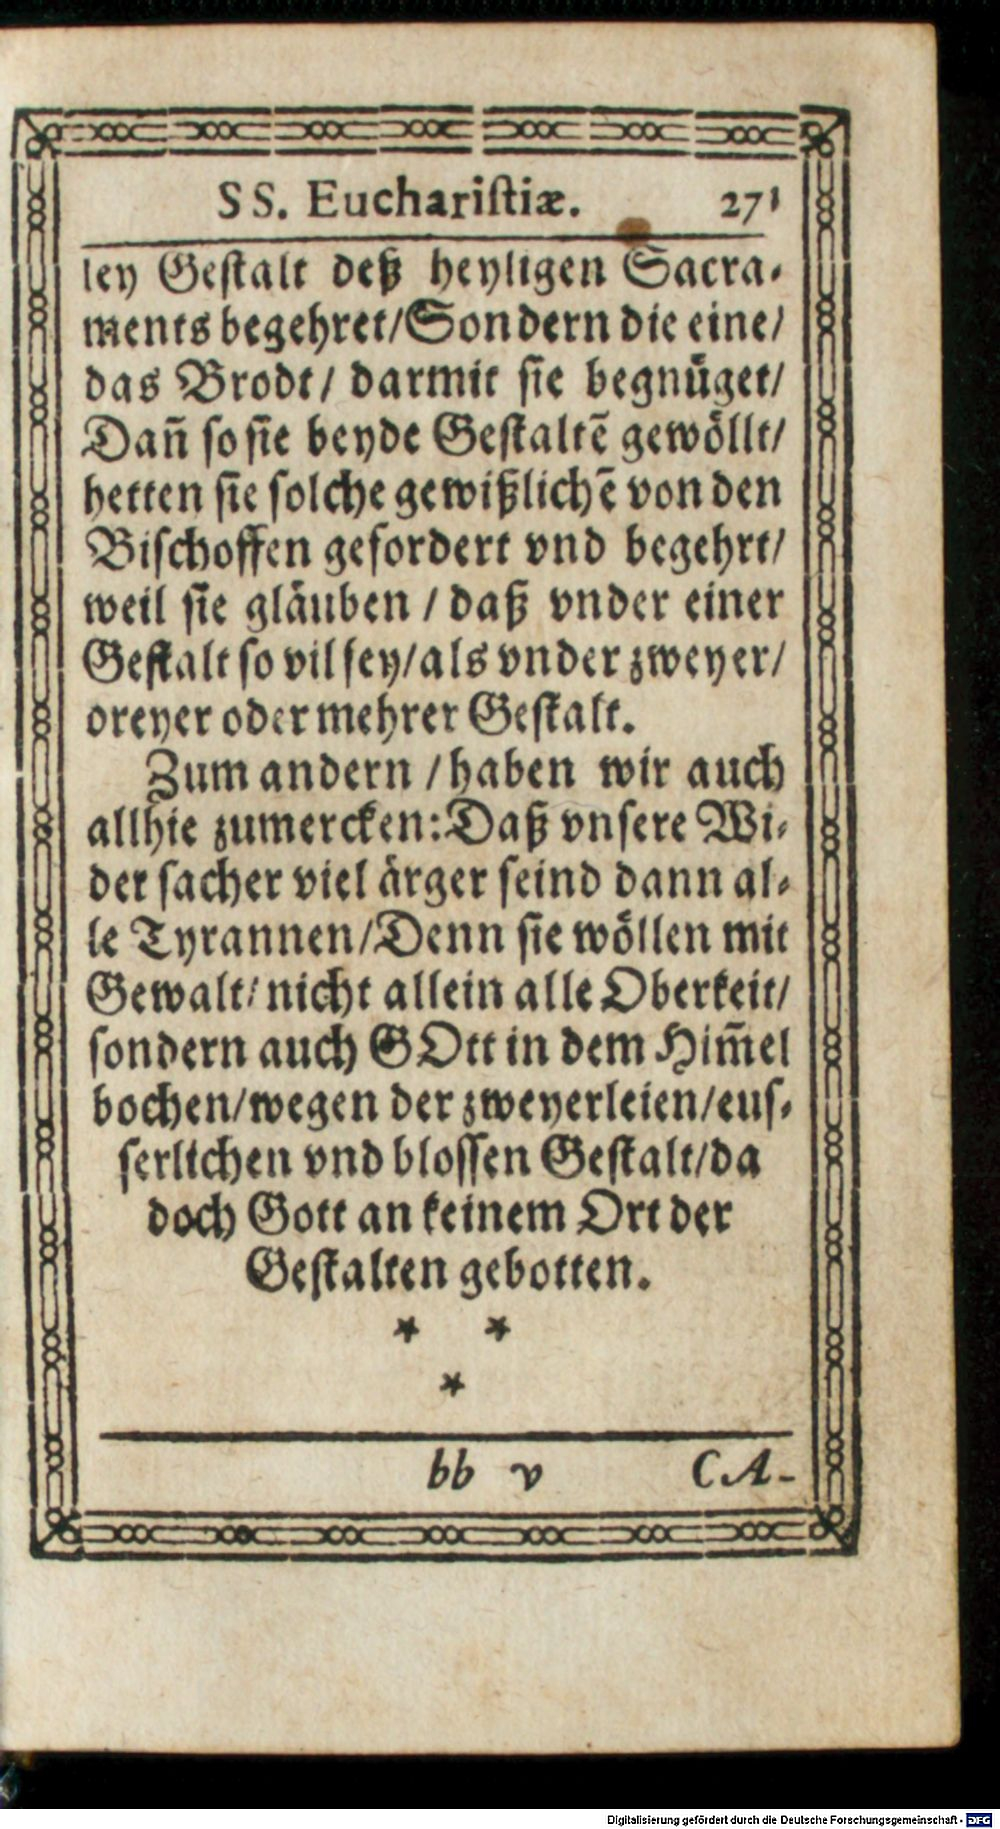 SS. Euchariſtiæ. 271
ley Geſtalt deß heyligen Sacra-
ments begehret/Sondern die eine/
das Brodt/ darmit ſie begnüget/
Dañ ſo ſie beyde Geſtaltẽ gewöllt/
hetten ſie ſolche gewißlichẽ von den
Biſchoffen gefordert vnd begehrt/
weil ſie gläuben / daß vnder einer
Geſtalt ſo vil ſey/als vnder zweyer/
dreyer oder mehrer Geſtalt.
Zum andern / haben wir auch
allhie zumercken: Daß vnſere Wi-
der ſacher viel ärger ſeind dann al-
le Tyrannen/Denn ſie wöllen mit
Gewalt/ nicht allein alle Oberkeit/
ſondern auch GOtt in dem Him̃el
bochen/wegen der zweyerleien/euſ-
ſerlichen vnd bloſſen Geſtalt/da
doch Gott an keinem Ort der
Geſtalten gebotten.
* *
*
bb v CA-
Digitalisierung gefördert durch die Deutsche Forschungsgemeinschaft - DFG